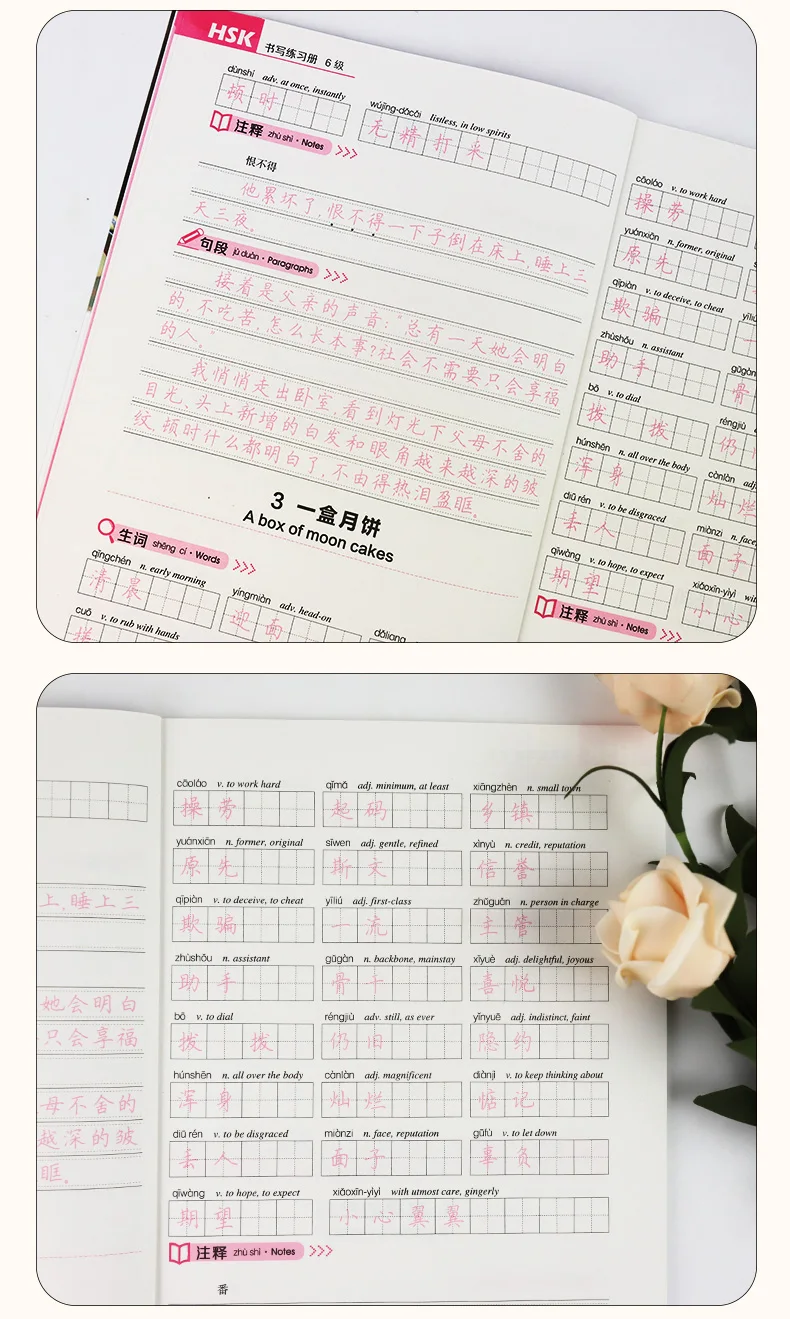 HSK 书写练习册 6 级
dùnshí adv. at once, instantly
顿时
wújīng-dǎcǎi listless, in low spirits
无精打采
注释 zhù shì · Notes
恨不得
他累坏了,恨不得一下子倒在床上,睡上三
天三夜。
句段 jù duàn · Paragraphs
接着是父亲的声音:“总有一天她会明白
的,不吃苦,怎么长本事?社会不需要只会享福
的人。”
我悄悄走出卧室,看到灯光下父母不舍的
目光、头上新增的白发和眼角越来越深的皱
纹,顿时什么都明白了,不由得热泪盈眶。
3 一盒月饼
A box of moon cakes
生词 shēng cí · Words
qīngchén n. early morning
清晨
yíngmiàn adv. head-on
迎面
cuō v. to rub with hands
搓
cāoláo v. to work hard
操劳
yuánxiān n. former, original
原先
qīpiàn v. to deceive, to cheat
欺骗
zhùshǒu n. assistant
助手
bō v. to dial
拨 拨
húnshēn n. all over the body
浑身
diū rén v. to be disgraced
丢人
qīwàng v. to hope, to expect
期望
注释 zhù shì · Notes
réngjiù
仍
cànlàn adj.
灿烂
miànzi n. face,
面子
xiǎoxīn-yìyì
小心
上,睡上三
她会明白
只会享福
母不舍的
越深的皱
眶。
cāoláo v. to work hard qǐmǎ adj. minimum, at least xiāngzhèn n. small town
操劳 起码 乡镇
yuánxiān n. former, original sīwen adj. gentle, refined xìnyù n. credit, reputation
原先 斯文 信誉
qīpiàn v. to deceive, to cheat yīliú adj. first-class zhǔguǎn n. person in charge
欺骗 一流 主管
zhùshǒu n. assistant gǔgàn n. backbone, mainstay xǐyuè adj. delightful, joyous
助手 骨干 喜悦
bō v. to dial réngjiù adv. still, as ever yǐnyuē adj. indistinct, faint
拨 拨 仍旧 隐约
húnshēn n. all over the body cànlàn adj. magnificent diànjì v. to keep thinking about
浑身 灿烂 惦记
diū rén v. to be disgraced miànzi n. face, reputation gūfù v. to let down
丢人 面子 辜负
qīwàng v. to hope, to expect xiǎoxīn-yìyì with utmost care, gingerly
期望 小心翼翼
注释 zhù shì · Notes
番